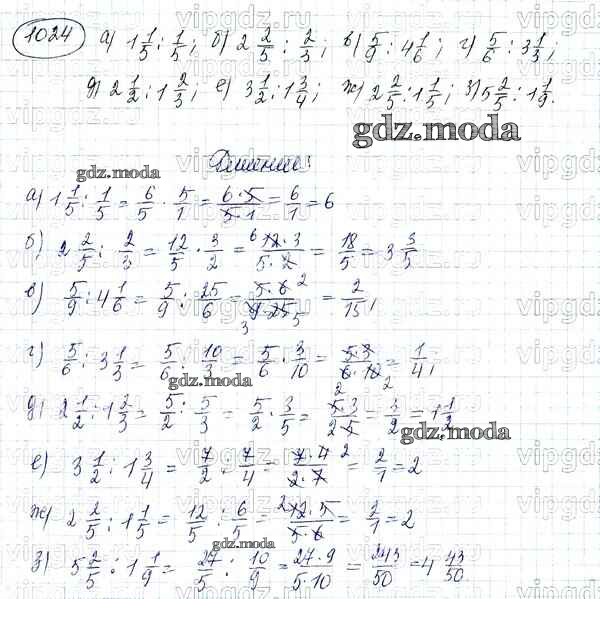 1024 а) 1 1/5 : 1/5; б) 2 2/5 : 2/3; в) 5/9 : 4 1/6; г) 5/6 : 3 1/3;
д) 2 1/2 : 1 2/3; е) 3 1/2 : 1 3/4; ж) 2 2/5 : 1 1/5; з) 5 2/5 : 1 1/9.
gdz.moda
Решение:
gdz.moda
а) 1 1/5 : 1/5 = 6/5 · 5/1 = 6·5/5·1 = 6/1 = 6
б) 2 2/5 : 2/3 = 12/5 · 3/2 = 6 12·3/5·2 = 18/5 = 3 3/5
в) 5/9 : 4 1/6 = 5/9 : 25/6 = 5·6 2/3 9·25 5 = 2/15;
г) 5/6 : 3 1/3 = 5/6 : 10/3 = 5/6 · 3/10 = 5·3/6·10 2 2 = 1/4;
gdz.moda
д) 2 1/2 : 1 2/3 = 5/2 : 5/3 = 5/2 · 3/5 = 5·3/2·5 = 3/2 = 1 1/2
gdz.moda
е) 3 1/2 : 1 3/4 = 7/2 : 7/4 = 7·4 2/2·7 = 2/1 = 2
ж) 2 2/5 : 1 1/5 = 12/5 : 6/5 = 2 12·5/5·6 = 2/1 = 2
gdz.moda
з) 5 2/5 : 1 1/9 = 27/5 : 10/9 = 27·9/5·10 = 243/50 = 4 43/50
vipgdz